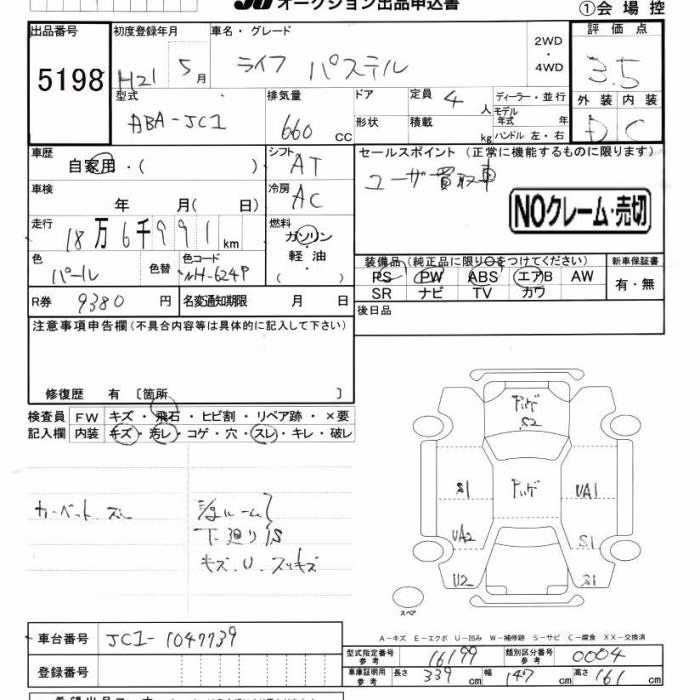 オークション出品申込書
①会場控
出品番号
5198
初度登録年月
H21 5月
車名・グレード
ライフ パステル
2WD
・
4WD
評価点
3.5
型式
ABA-JC1
排気量
660 CC
ドア
形状
定員 4 人
積載 kg
ディーラー・並行
モデル年式 年
ハンドル 左・右
外装 内装
D C
車歴
自家用・( )
シフト
AT
セールスポイント(正常に機能するものに限ります)
ユーザー買取車
車検
年 月( 日)
冷房
AC
NOクレーム・売切
走行
18万6千991km
燃料
ガソリン
軽油
( )
色
パール
色替
色コード
NH-624P
装備品(純正品に限り○をつけてください)
新車保証書
PS PW ABS エアB AW
SR ナビ TV カワ
有・無
R券 9380 円
名変通知期限 月 日
後日品
注意事項申告欄(不具合内容等は具体的に記入して下さい)
修復歴 有 〔箇所 〕
検査員
記入欄
FW キズ・飛石・ヒビ割・リペア跡・×要
内装 キズ・汚レ・コゲ・穴・スレ・キレ・破レ
カーペット スレ
下廻りS
キズ.U.スリキズ
S2
S1
UA1
UA2
S1
U2
S1
スペア
A-キズ E-エクボ U-凹み W-補修跡 S-サビ C-腐食 XX-交換済
車台番号 JC1-1047739
型式指定番号 参考 16199
類別区分番号 参考 0004
登録番号
車庫証明用 参考 長さ 339 cm 幅 147 cm 高さ 161 cm